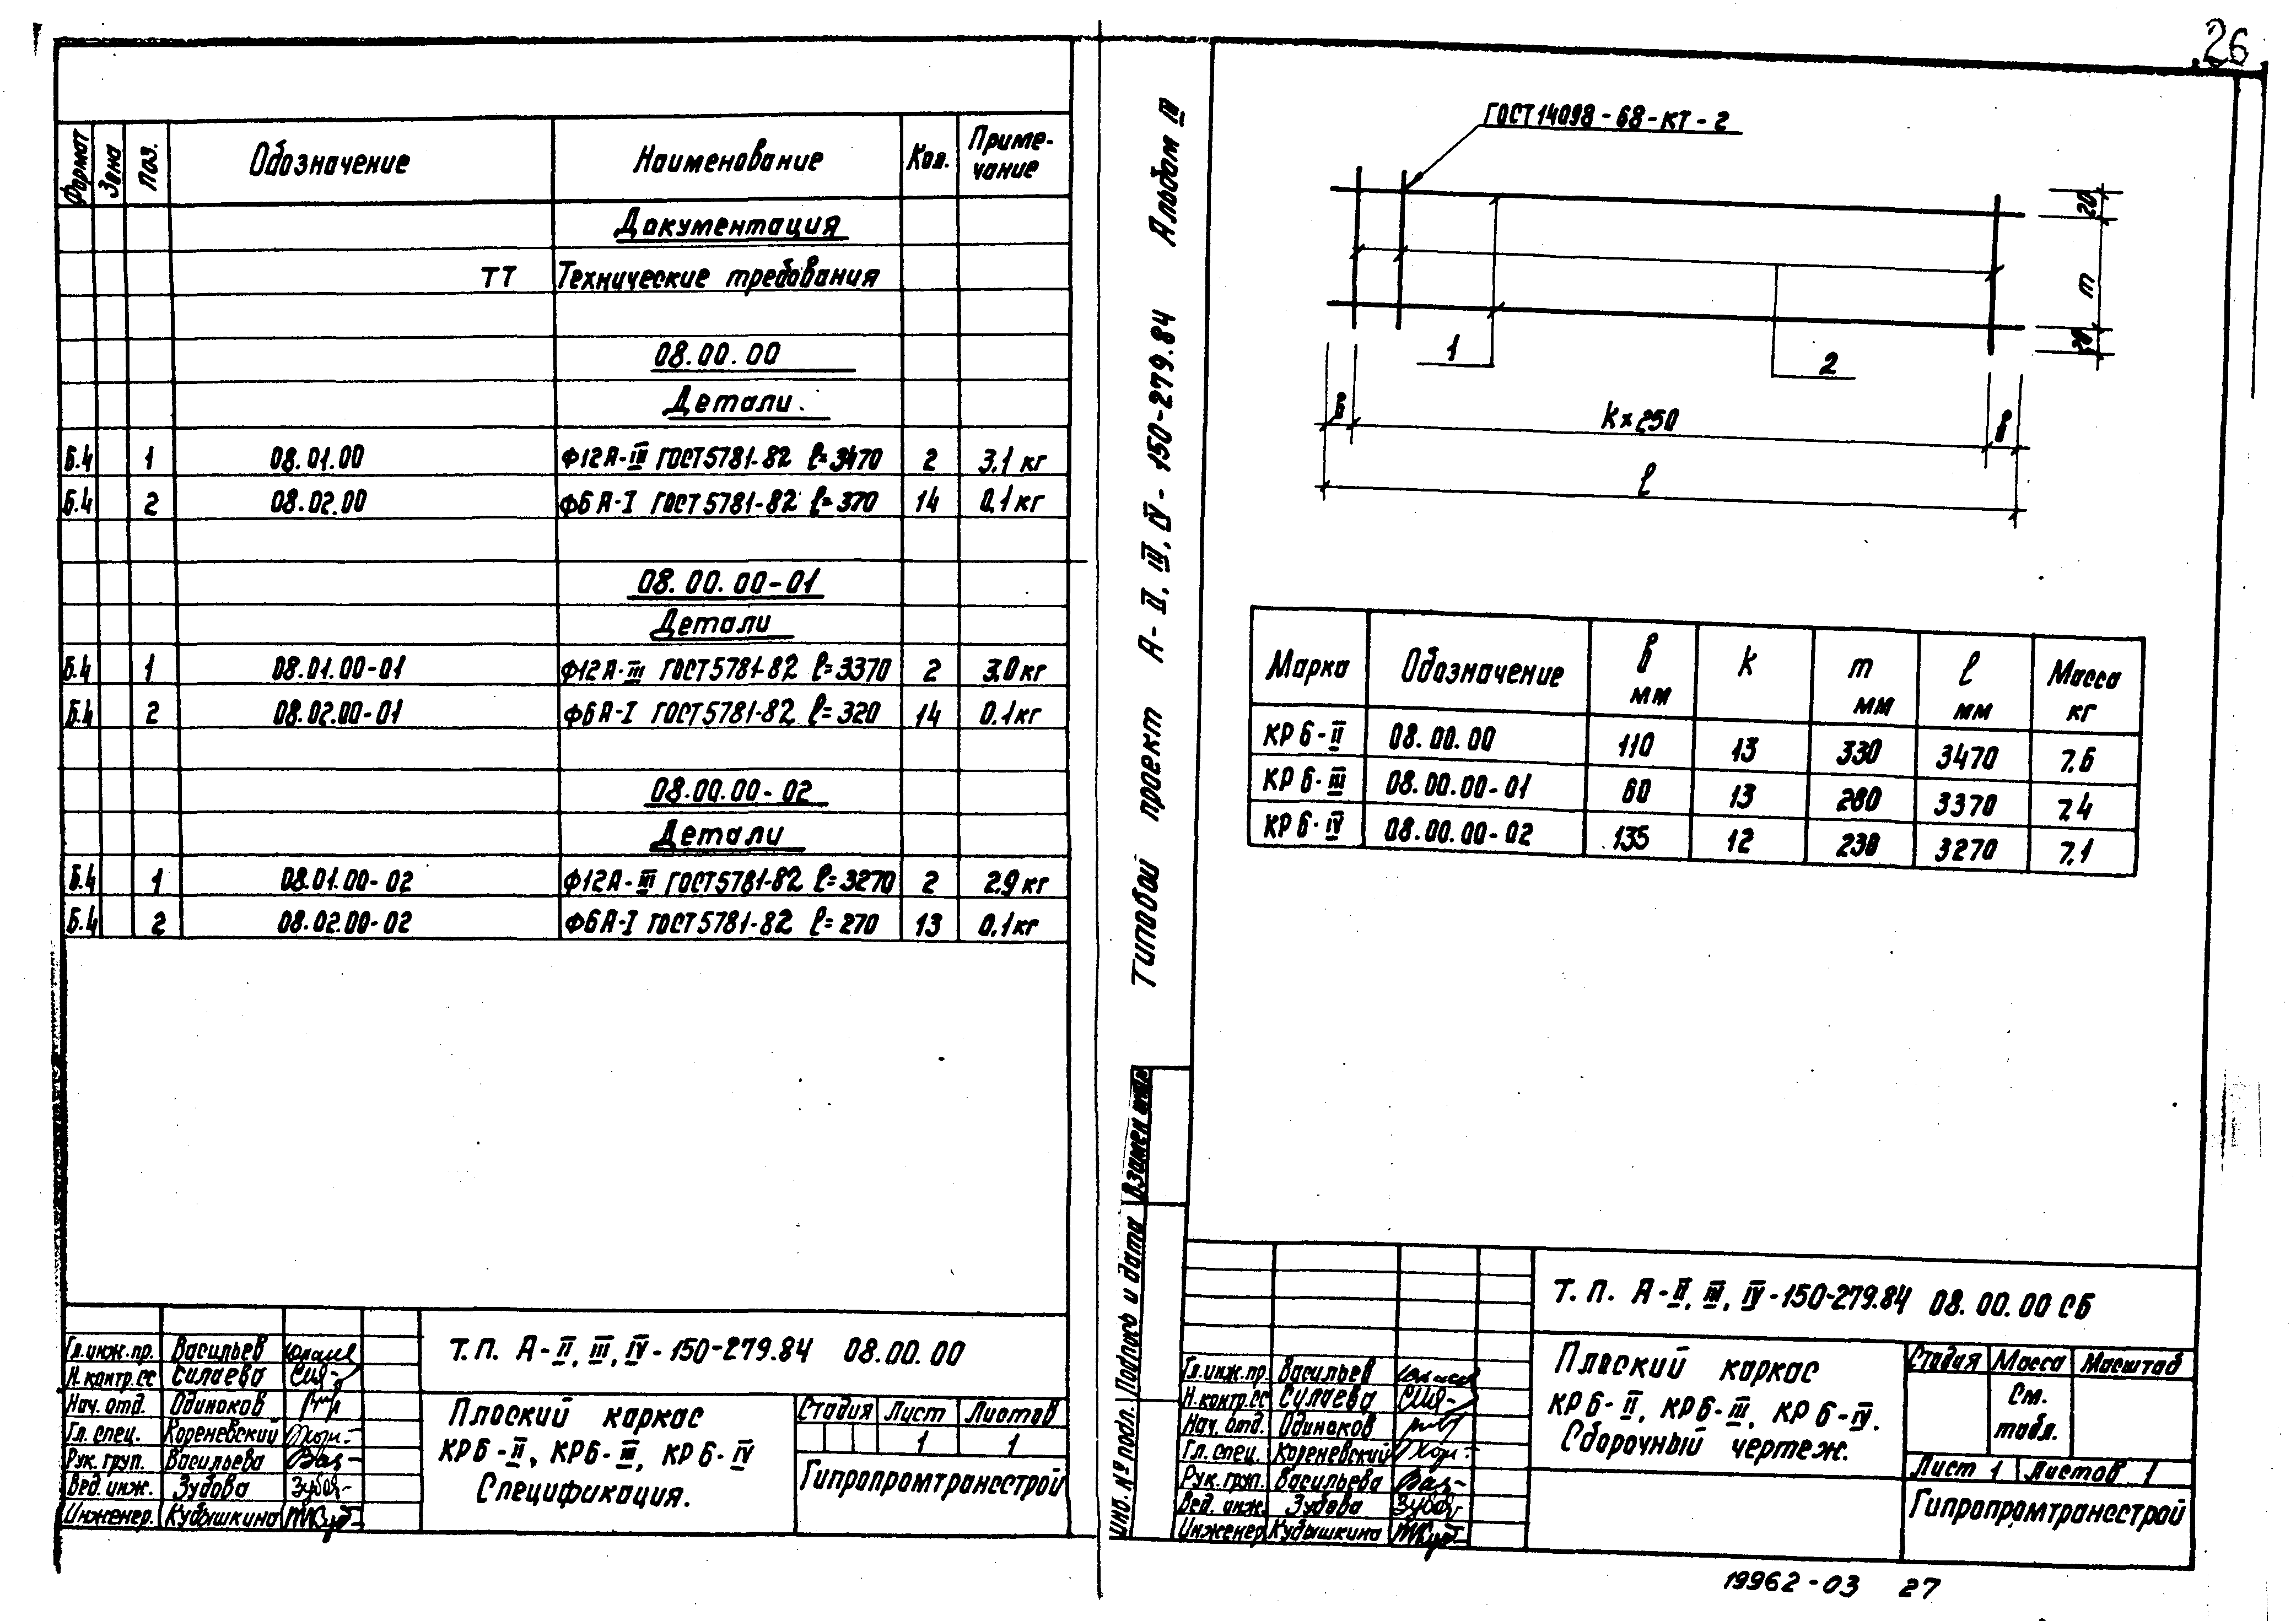 26
Формат Зона Поз. Обозначение Наименование Кол. Приме-
чание
Документация
ТТ Технические требования
08.00.00
Детали.
Б.4 1 08.01.00 Ф12А-III ГОСТ 5781-82 ℓ=3470 2 3.1 кг
Б.4 2 08.02.00 Ф6А-I ГОСТ 5781-82 ℓ=370 14 0.1 кг
08.00.00-01
Детали
Б.4 1 08.01.00-01 Ф12А-III ГОСТ 5781-82 ℓ=3370 2 3.0 кг
Б.4 2 08.02.00-01 Ф6А-I ГОСТ 5781-82 ℓ=320 14 0.1 кг
08.00.00-02
Детали
Б.4 1 08.01.00-02 Ф12А-III ГОСТ 5781-82 ℓ=3270 2 2.9 кг
Б.4 2 08.02.00-02 Ф6А-I ГОСТ 5781-82 ℓ=270 13 0.1 кг
Т.П. А-II, III, IV-150-279.84 08.00.00
Гл.инж.пр. Васильев
Н.контр.сс Силаева
Нач. отд. Одиноков
Гл. спец. Кореневский
Рук. груп. Васильева
Вед. инж. Зубова
Инженер. Кудышкина
Плоский каркас
КР6-II, КР6-III, КР6-IV
Спецификация.
Стадия Лист Листов
1 1
Гипропромтрансстрой
Типовой проект А-II, III, IV-150-279.84 Альбом III
Инв. № подл. Подпись и дата Взамен инв.
ГОСТ 14098-68-КТ-2
20
m
20
1
2
в k×250 в
ℓ
Марка Обозначение в мм k m мм ℓ мм Масса кг
КР6-II 08.00.00 110 13 330 3470 7.6
КР6-III 08.00.00-01 60 13 280 3370 7.4
КР6-IV 08.00.00-02 135 12 230 3270 7.1
Т.П. А-II, III, IV-150-279.84 08.00.00 СБ
Гл.инж.пр. Васильев
Н.контр.сс Силаева
Нач. отд. Одиноков
Гл. спец. Кореневский
Рук. груп. Васильева
Вед. инж. Зубова
Инженер Кудышкина
Плоский каркас
КР6-II, КР6-III, КР6-IV.
Сборочный чертеж.
Стадия Масса Масштаб
См.
табл.
Лист 1 Листов 1
Гипропромтрансстрой
19962-03 27